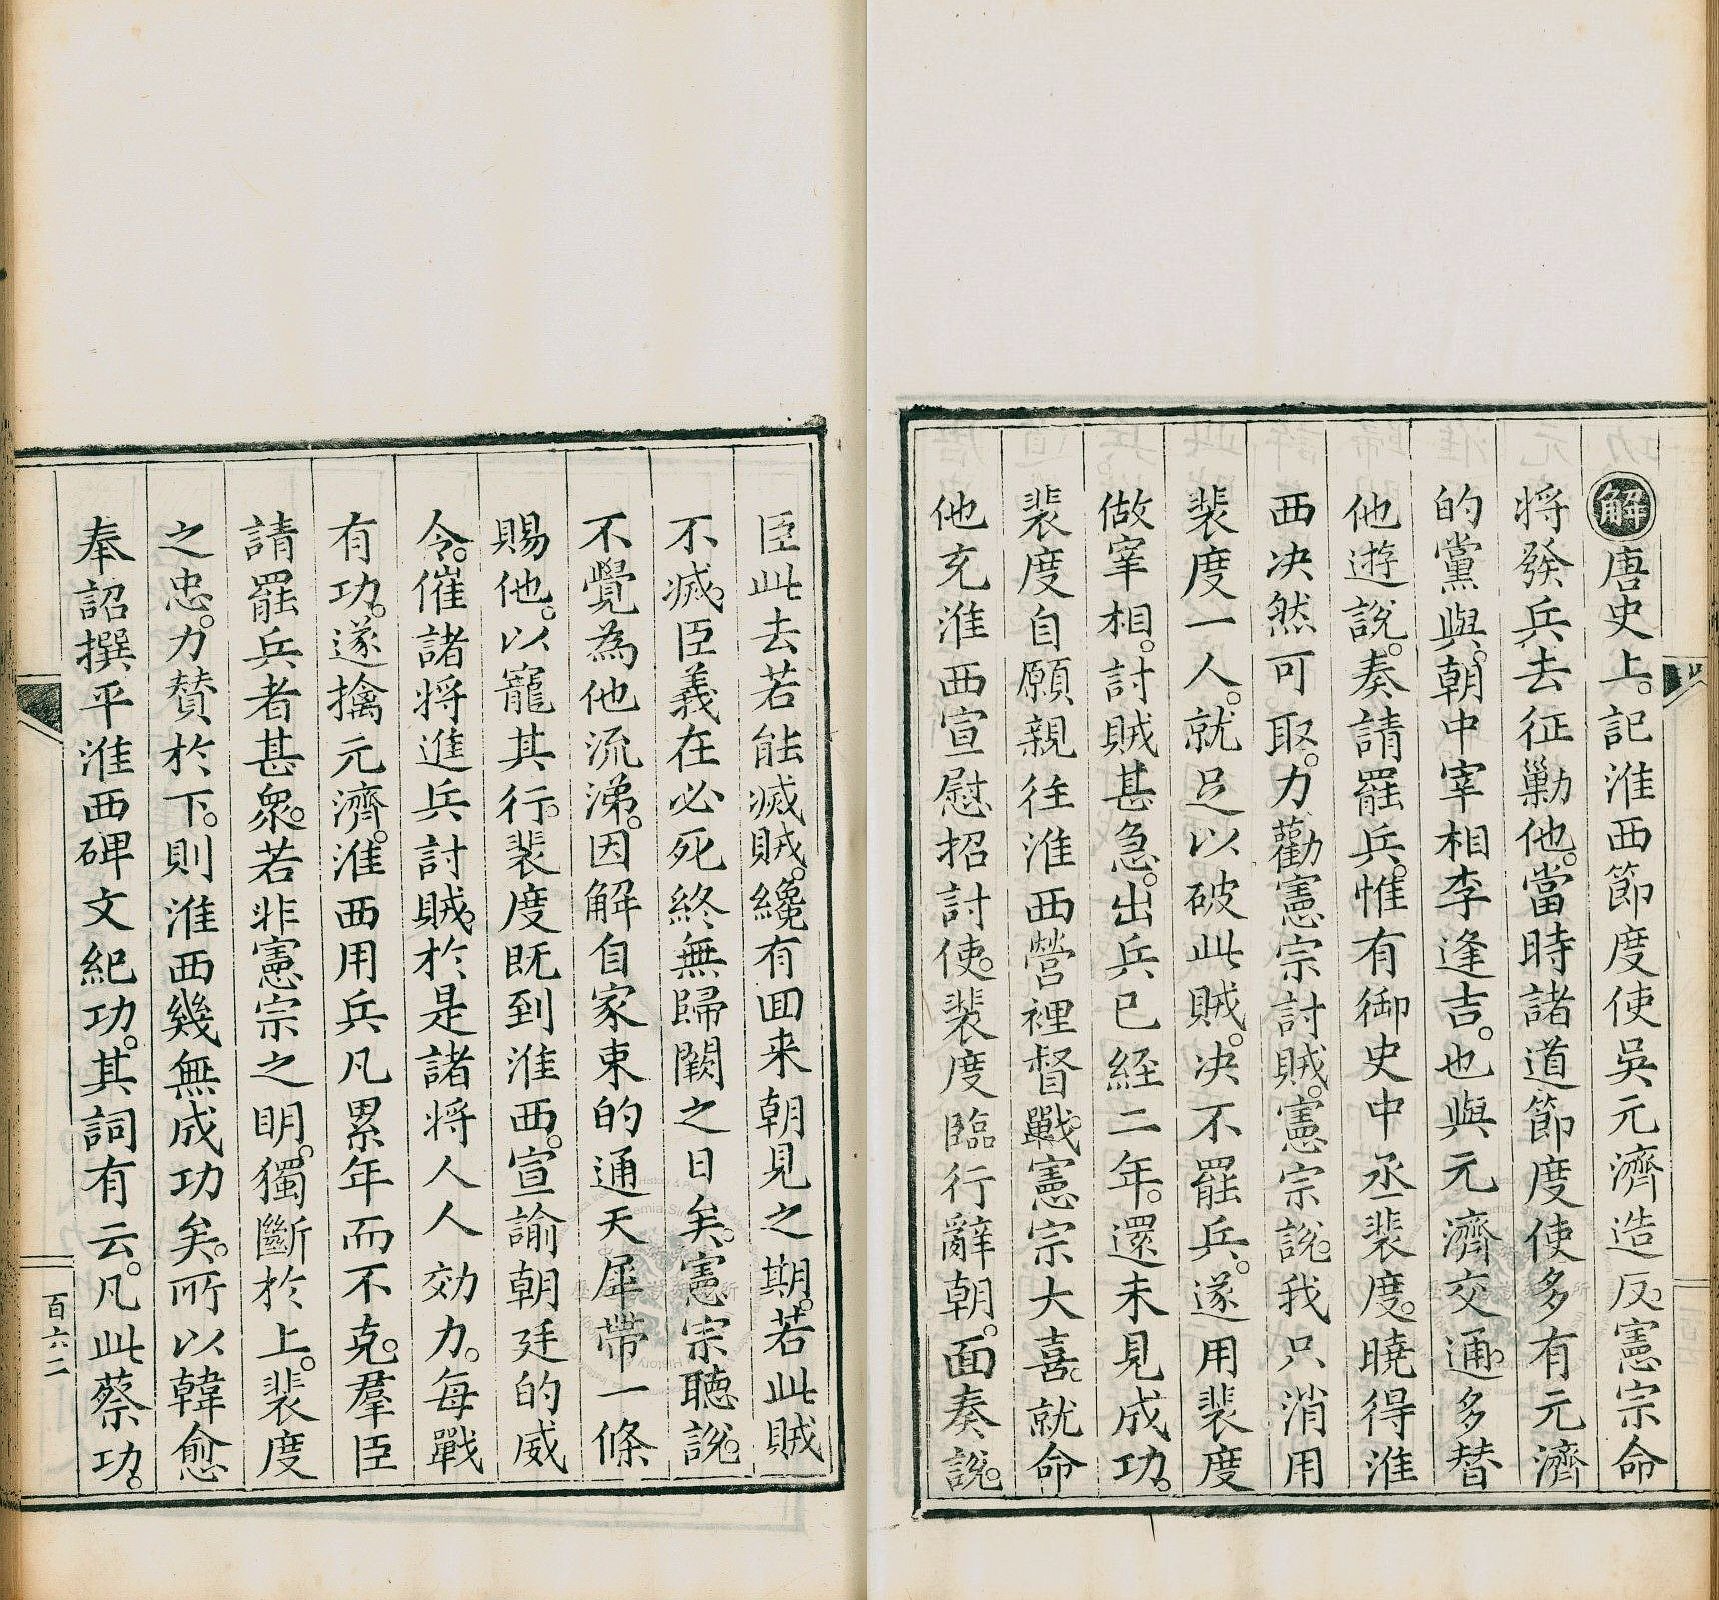 解唐史上。記淮西節度使吳元濟造反。憲宗命
將發兵去征勦他。當時諸道節度使多有元濟
的黨與。朝中宰相李逢吉。也與元濟交通。多替
他遊說。奏請罷兵。惟有御史中丞裴度。曉得淮
西決然可取。力勸憲宗討賊。憲宗說。我只消用
裴度一人。就足以破此賊。決不罷兵。遂用裴度
做宰相。討賊甚急。出兵已經二年。還未見成功。
裴度自願親往淮西營裡督戰。憲宗大喜。就命
他充淮西宣慰招討使。裴度臨行辭朝。面奏說。
臣此去若能滅賊。纔有囬来朝見之期。若此賊
不滅。臣義在必死。終無歸闕之日矣。憲宗聽說。
不覺為他流涕。因解自家束的通天犀帶一條
賜他。以寵其行。裴度既到淮西。宣諭朝廷的威
令。催諸將進兵討賊。於是諸將人人効力。每戰
有功。遂擒元濟。淮西用兵凡累年而不克。羣臣
請罷兵者甚衆。若非憲宗之明。獨斷於上。裴度
之忠。力贊於下。則淮西幾無成功矣。所以韓愈
奉詔撰平淮西碑文紀功。其詞有云。凡此蔡功。
百六二